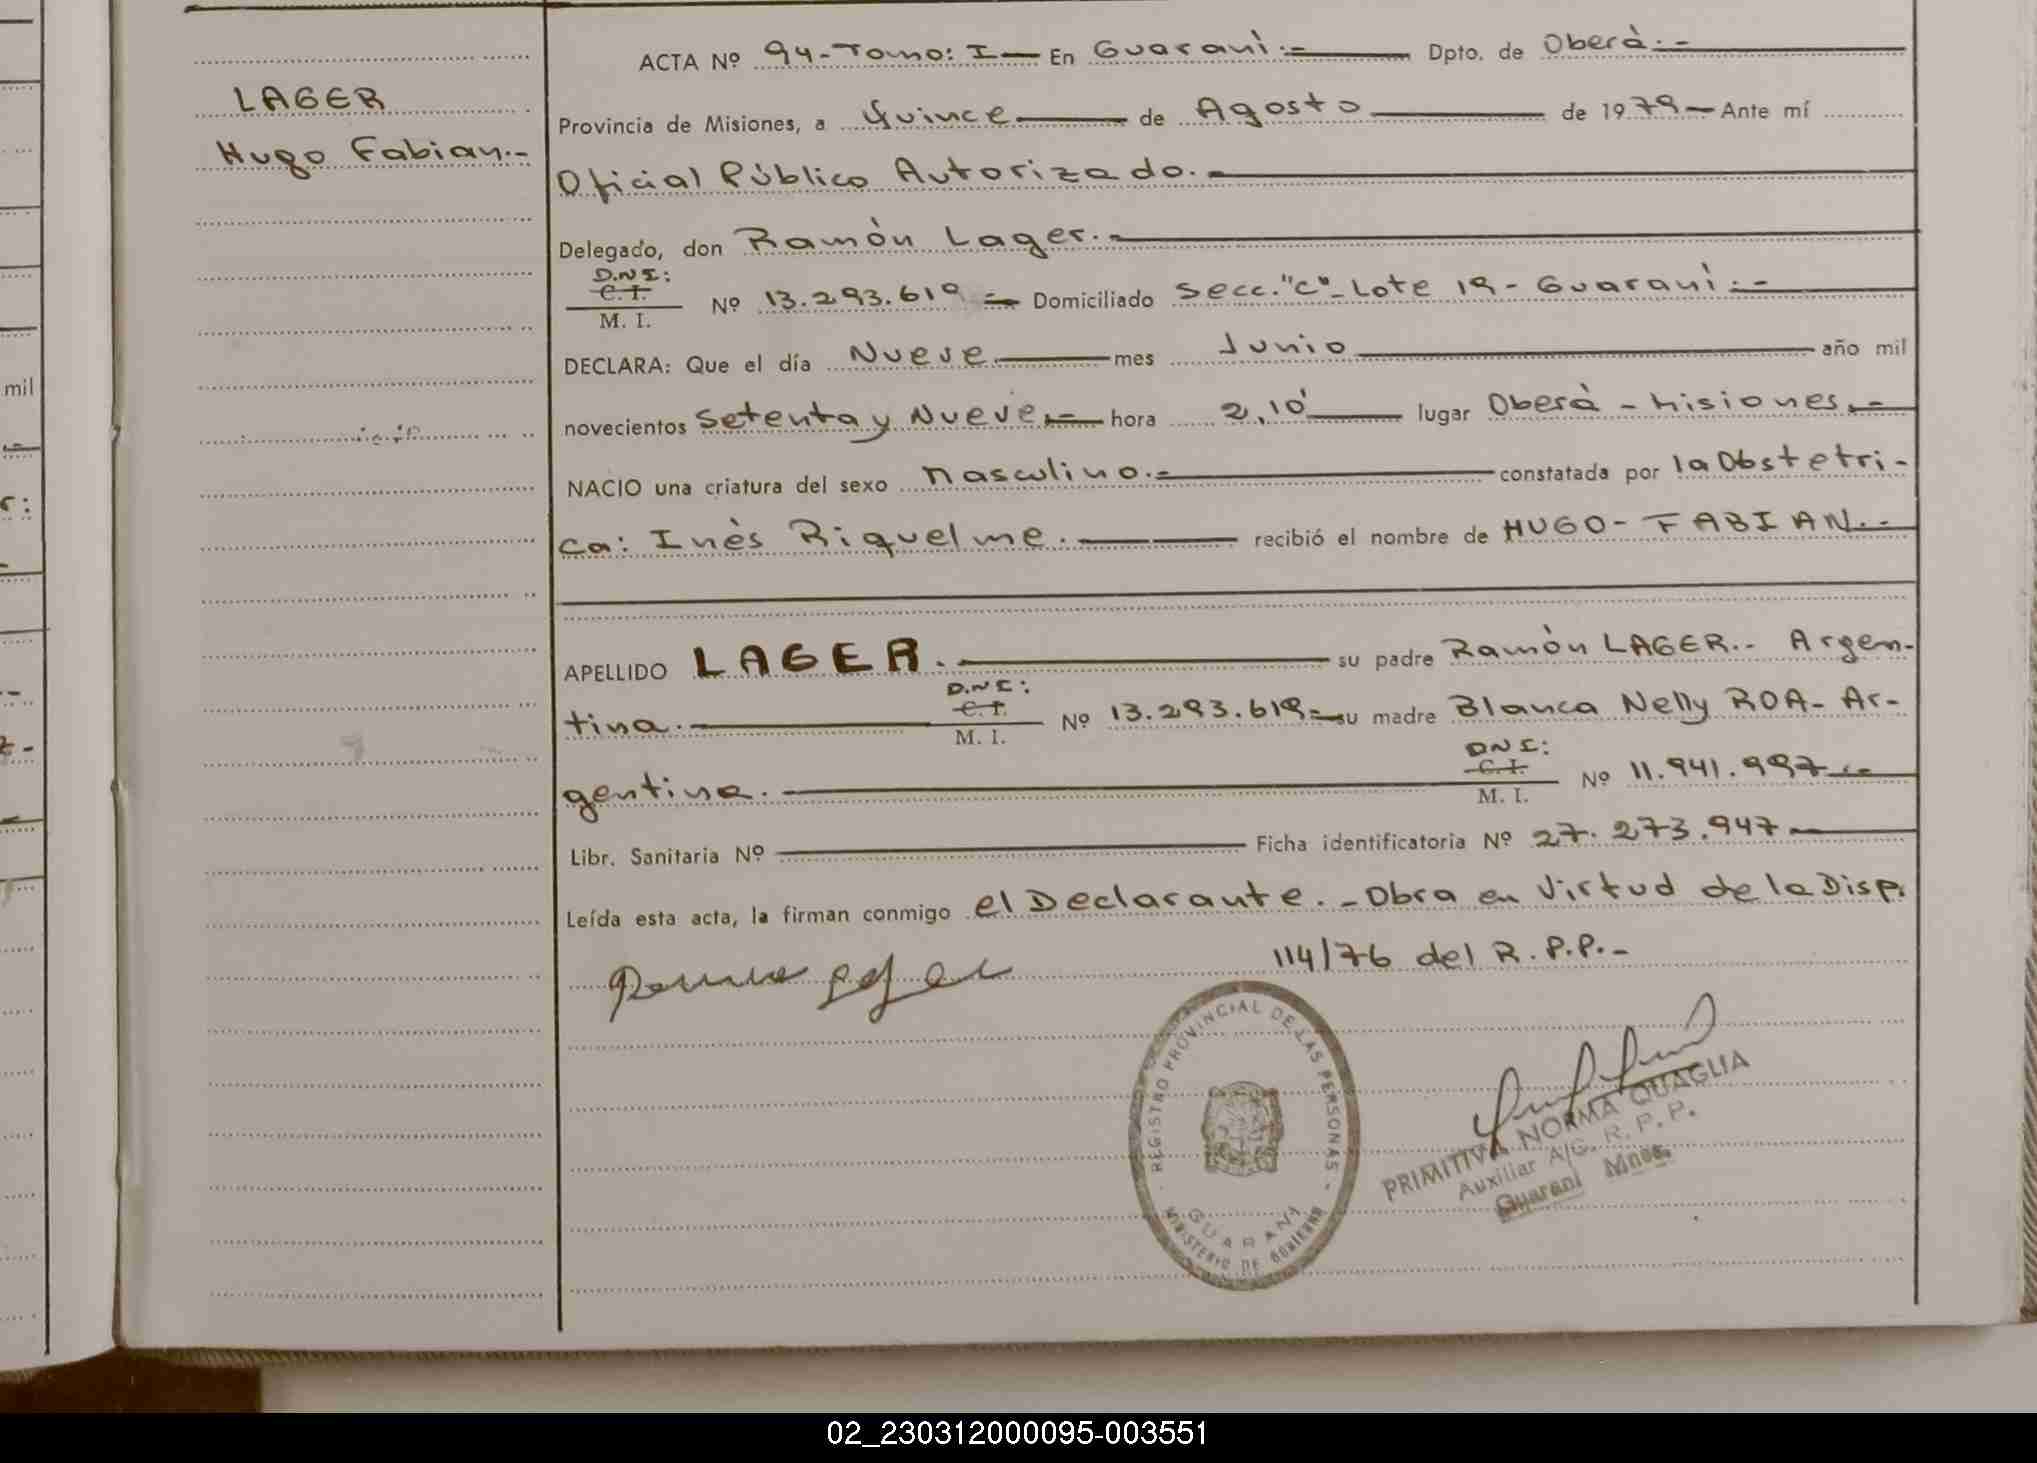 LAGER
Hugo Fabian.-
ACTA Nº 94-Tomo: I- En Guaranì.- Dpto. de Oberà.-
Provincia de Misiones, a Quince de Agosto de 1979- Ante mí
Oficial Público Autorizado.-
Delegado, don Ramòn Lager.-
D.N.I:
C.I.
M. I.
Nº 13.293.619 Domiciliado Secc."C"-Lote 19-Guaranì.-
DECLARA: Que el día Nueve mes Junio año mil
novecientos Setenta y Nueve.- hora 2,10' lugar Oberà-Misiones.-
NACIO una criatura del sexo Masculino.- constatada por la Obstetri-
ca: Inès Riquelme. recibió el nombre de HUGO-FABIAN.-
APELLIDO LAGER.- su padre Ramòn LAGER.- Argen-
D.N.I:
C.I.
M. I.
tina.- Nº 13.293.619- su madre Blanca Nelly ROA- Ar-
D.N.I:
C.I.
M. I.
gentina.- Nº 11.941.997.-
Libr. Sanitaria Nº Ficha identificatoria Nº 27.273.947-
Leída esta acta, la firman conmigo el Declarante.-Obra en Virtud de la Disp.
114/76 del R.P.P.-
REGISTRO PROVINCIAL DE LAS PERSONAS
GUARANI
MINISTERIO DE GOBIERNO
PRIMITIVA NORMA QUAGLIA
Auxiliar A/G. R. P. P.
Guaraní Mnes.
mil
02_230312000095-003551